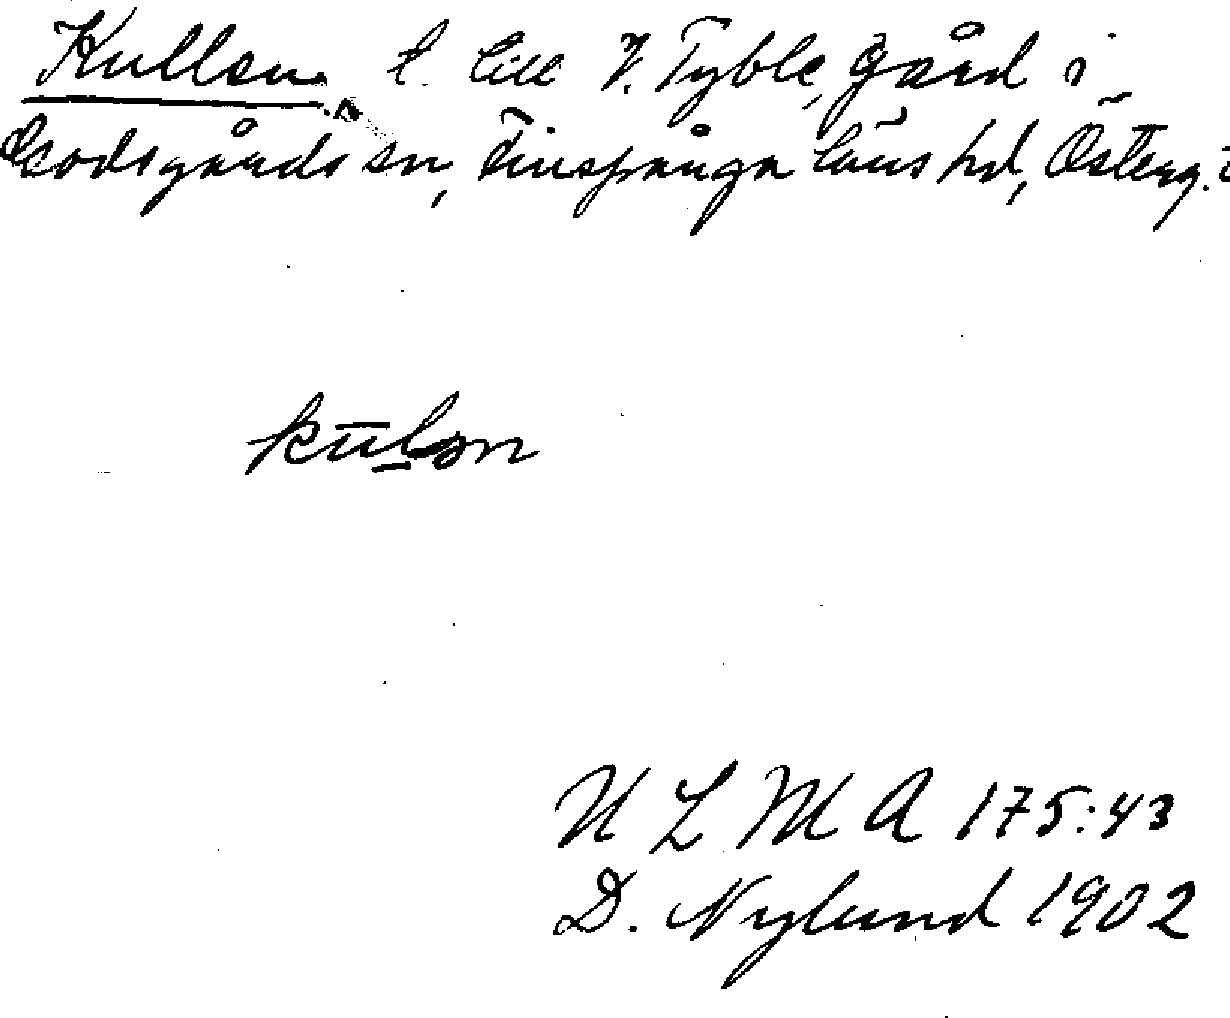 Kullen, t. till V. Tyble, gård i
Godegårds sn, Finspånga läns hd, Österg.
kūlən
U L M A 175:43
D. Nylund 1902